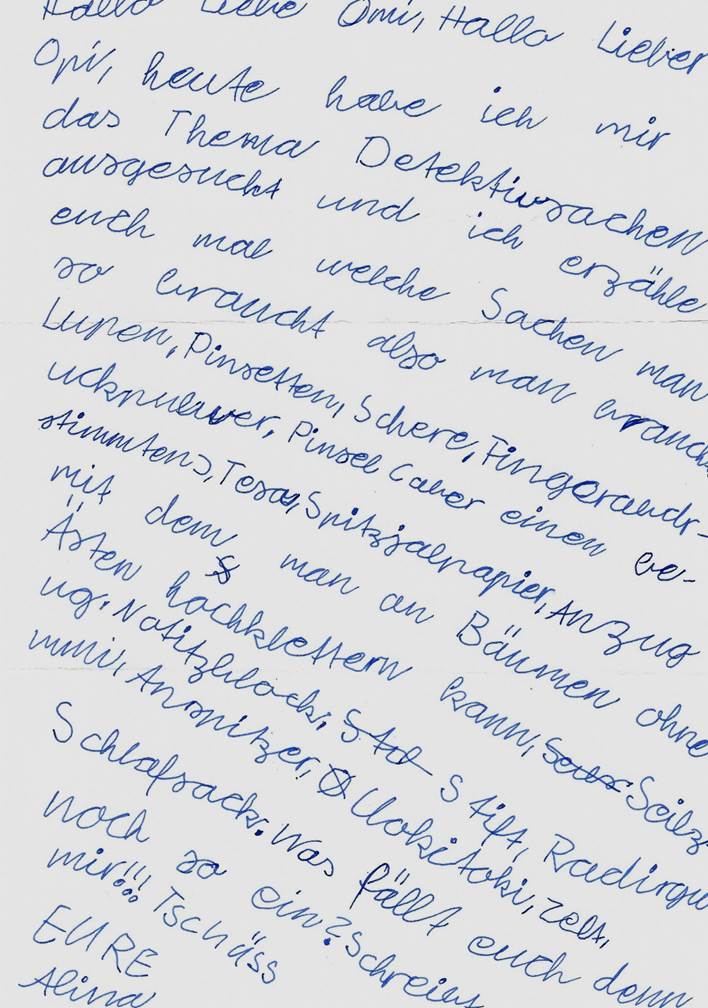 Hallo Liebe Omi, Hallo Lieber
Opi, heute habe ich mir
das Thema Detektivsachen
ausgesucht und ich erzähle
euch mal welche Sachen man
so braucht also man brauch
Lupen, Pinsetten, Schere, Fingerabdr-
uckpulwer, Pinsel (aber einen be-
stimmten), Tesa, Spitzjalpapier, Anzug
mit dem man an Bäumen ohne
Ästen hochklettern kann, Seilz
ug, Notitzblock, Stift, Radirgu
mmi, Anspitzer, Uokitoki, Zelt,
Schlafsack. Was fällt euch denn
noch so ein? Schreibt
mir!!! Tschüss
EURE
Alina